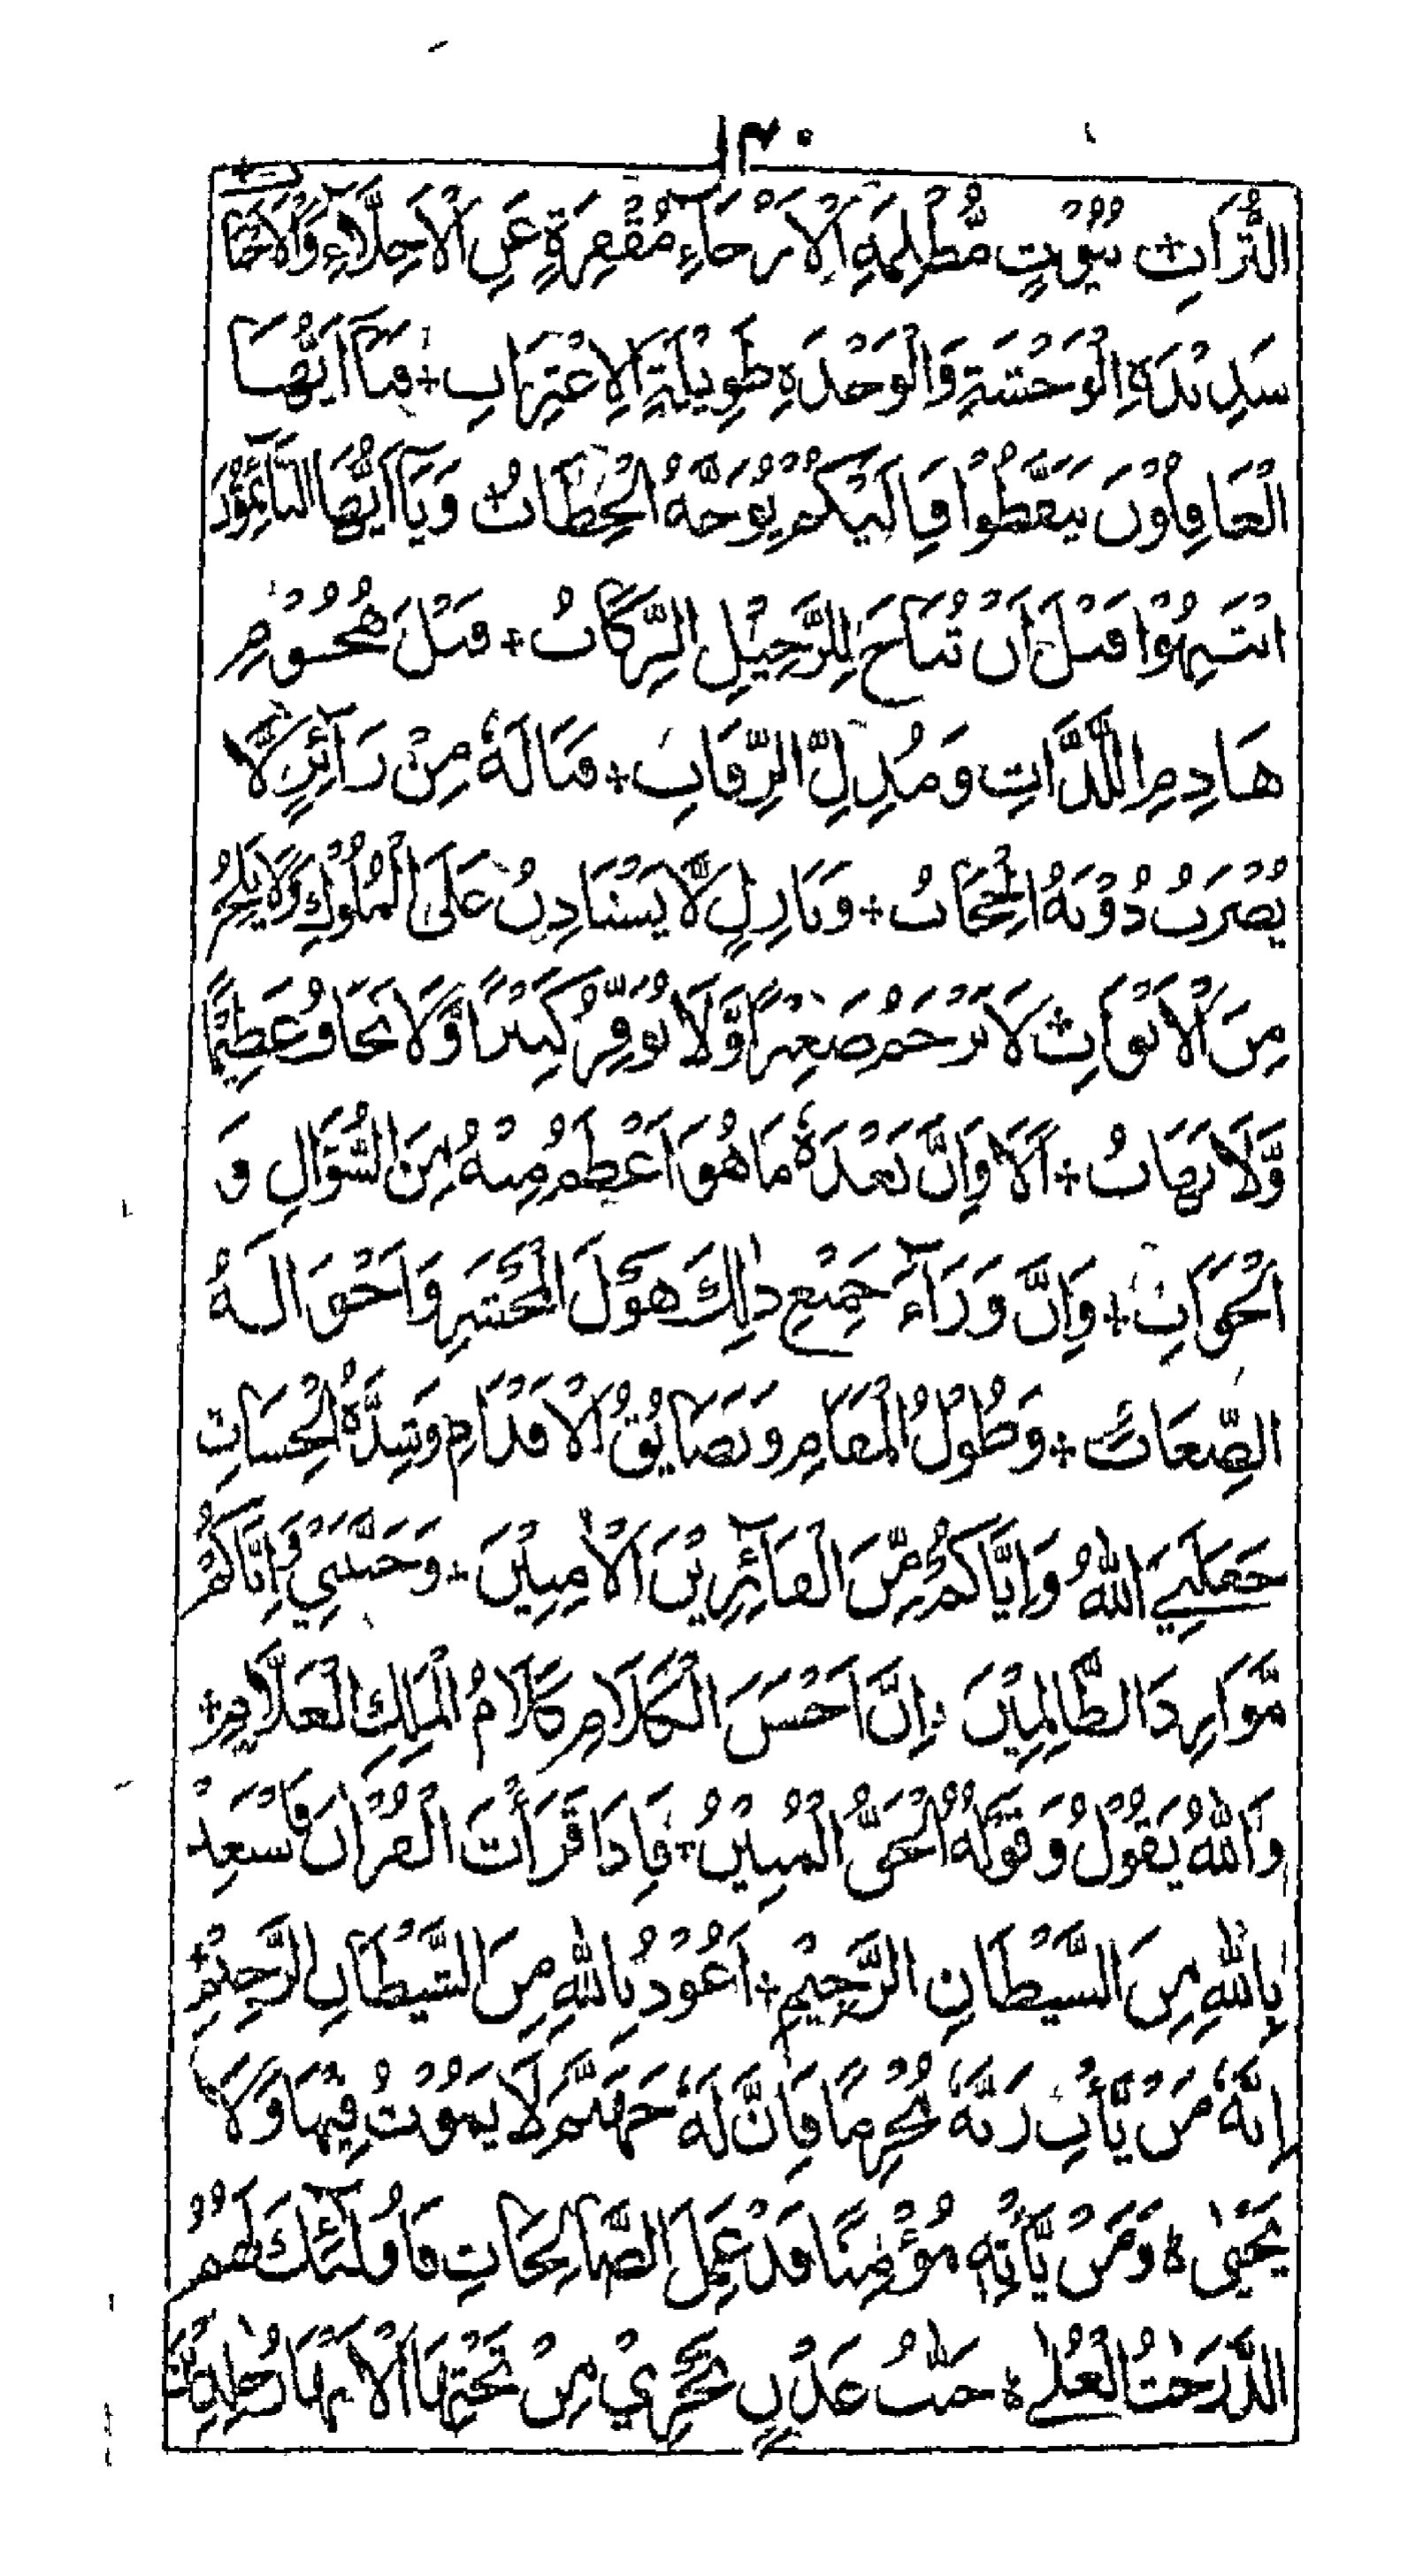 ۱۳۰
التُّرَابِ + بُيُوْتٍ مُّظْلِمَةِ الْاَرْجَآءِ مُقْفِرَةٍ عَنِ الْاَخِلَّآءِ وَالْاَحْبَابِ
شَدِيْدَةِ الْوَحْشَةِ وَالْوَحْدَةِ طَوِيْلَةِ الْاِغْتِرَابِ + فَيَآ اَيُّهَا
الْغَافِلُوْنَ تَيَقَّظُوْا فَاِلَيْكُمْ يُوَجَّهُ الْخِطَابُ + وَيَآ اَيُّهَا النَّآئِمُوْنَ
انْتَبِهُوْا قَبْلَ اَنْ تُنَاخَ لِلرَّحِيْلِ الرِّكَابُ + قَبْلَ هُجُوْمِ
هَادِمِ اللَّذَّاتِ وَمُذِلِّ الرِّقَابِ + فَيَالَهٗ مِنْ زَآئِرٍ لَّا
يُضْرَبُ دُوْنَهُ الْحِجَابُ + وَنَازِلٍ لَّا يَسْتَاذِنُ عَلَى الْمُلُوْكِ وَلَا يَلِجُ
مِنَ الْاَبْوَابِ + لَا يَرْحَمُ صَغِيْرًا وَّلَا يُوَقِّرُ كَبِيْرًا وَّلَا يَخَافُ عَظِيْمًا
وَّلَا يَهَابُ + اَلَا وَاِنَّ بَعْدَهٗ مَا هُوَ اَعْظَمُ مِنْهُ مِنَ السُّؤَالِ وَ
الْجَوَابِ + وَاِنَّ وَرَآءَ جَمِيْعِ ذٰلِكَ هَوْلَ الْمَحْشَرِ وَاَحْوَالَهُ
الصِّعَابَ + وَطُوْلُ الْمَقَامِ وَتَضَايُقُ الْاَقْدَامِ وَشِدَّةُ الْحِسَابِ
جَعَلَنِيَ اللّٰهُ وَاِيَّاكُمْ مِّنَ الْفَآئِزِيْنَ الْاٰمِنِيْنَ + وَجَنَّبَنِيْ وَاِيَّاكُمْ
مَّوَارِدَ الظَّالِمِيْنَ + اِنَّ اَحْسَنَ الْكَلَامِ كَلَامُ الْمَلِكِ الْعَلَّامِ +
وَاللّٰهُ يَقُوْلُ وَقَوْلُهُ الْحَقُّ الْمُبِيْنُ + فَاِذَا قَرَأْتَ الْقُرْاٰنَ فَاسْتَعِذْ
بِاللّٰهِ مِنَ الشَّيْطَانِ الرَّجِيْمِ + اَعُوْذُ بِاللّٰهِ مِنَ الشَّيْطَانِ الرَّجِيْمِ +
اِنَّهٗ مَنْ يَّأْتِ رَبَّهٗ مُجْرِمًا فَاِنَّ لَهٗ جَهَنَّمَ لَا يَمُوْتُ فِيْهَا وَلَا
يَحْيٰى ہ وَمَنْ يَّأْتِهٖ مُؤْمِنًا قَدْ عَمِلَ الصَّالِحَاتِ فَاُولٰٓئِكَ لَهُمُ
الدَّرَجٰتُ الْعُلٰے ہ جَنّٰتُ عَدْنٍ تَجْرِيْ مِنْ تَحْتِهَا الْاَنْهَارُ خٰلِدِيْنَ